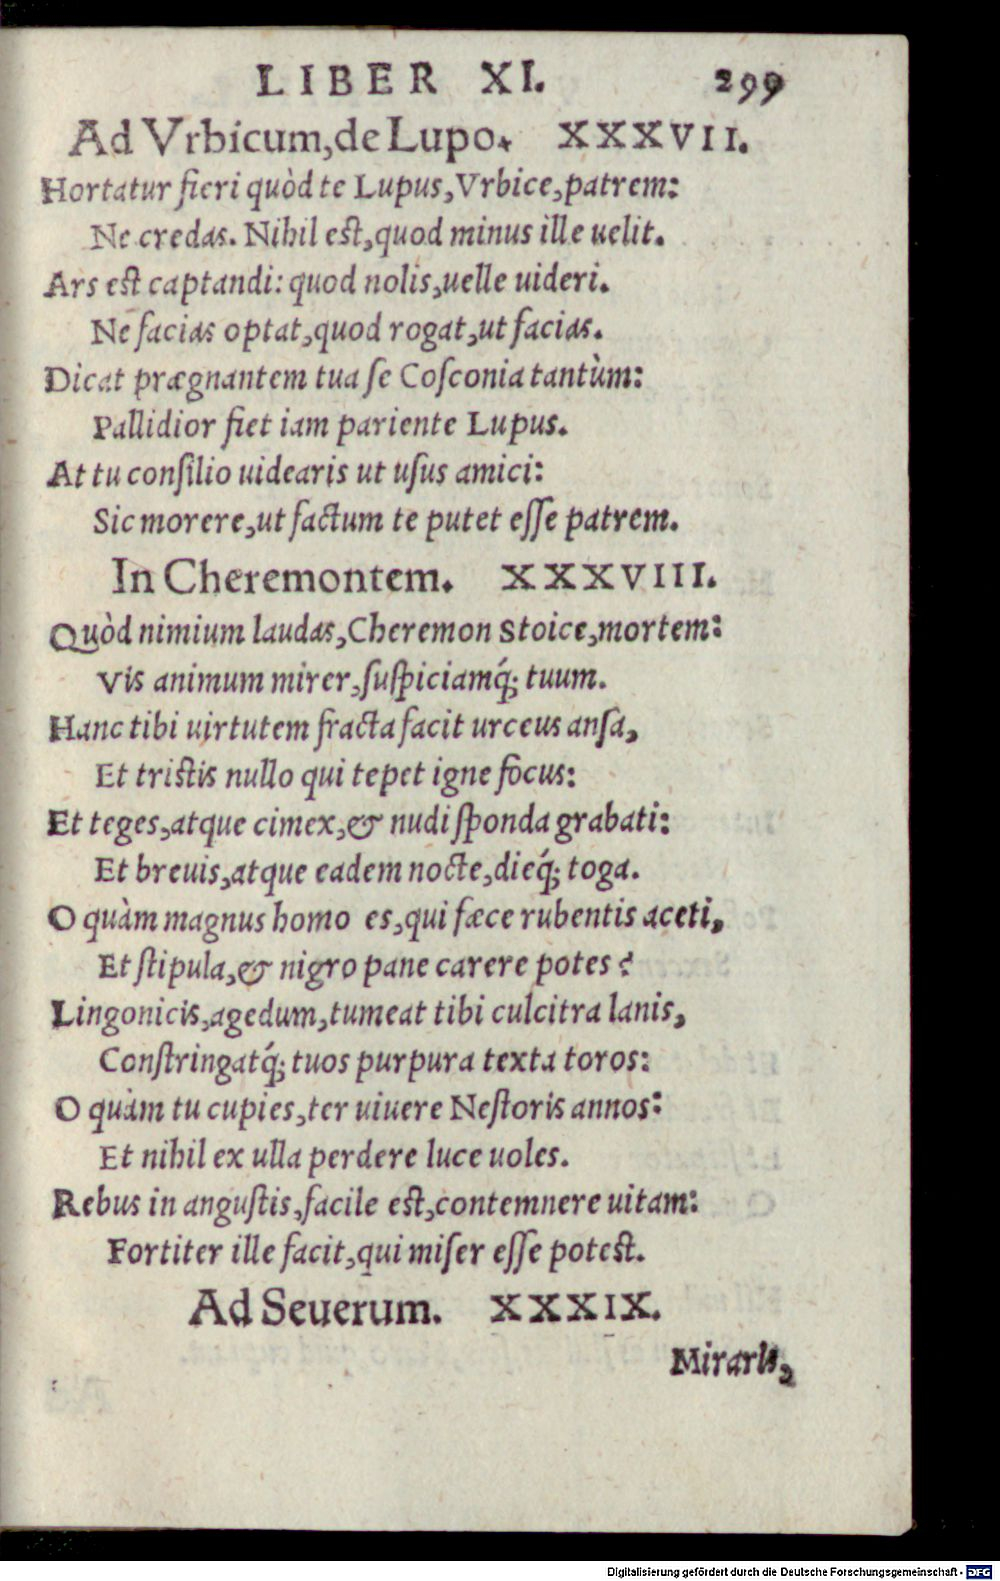 LIBER XI. 299
Ad Vrbicum, de Lupo. XXXVII.
Hortatur fieri quòd te Lupus, Vrbice, patrem:
Ne credas. Nihil est, quod minus ille uelit.
Ars est captandi: quod nolis, uelle uideri.
Ne facias optat, quod rogat, ut facias.
Dicat prægnantem tua se Cosconia tantùm:
Pallidior fiet iam pariente Lupus.
At tu consilio uidearis ut usus amici:
Sic morere, ut factum te putet esse patrem.
In Cheremontem. XXXVIII.
Quòd nimium laudas, Cheremon Stoice, mortem:
Vis animum mirer, suspiciamq́; tuum.
Hanc tibi uirtutem fracta facit urceus ansa,
Et tristis nullo qui tepet igne focus:
Et teges, atque cimex, & nudi sponda grabati:
Et breuis, atque eadem nocte, dieq́; toga.
O quàm magnus homo es, qui fæce rubentis aceti,
Et stipula, & nigro pane carere potes?
Lingonicis, agedum, tumeat tibi culcitra lanis,
Constringatq́; tuos purpura texta toros:
O quàm tu cupies, ter uiuere Nestoris annos:
Et nihil ex ulla perdere luce uoles.
Rebus in angustis, facile est, contemnere uitam:
Fortiter ille facit, qui miser esse potest.
Ad Seuerum. XXXIX.
Miraris,
Digitalisierung gefördert durch die Deutsche Forschungsgemeinschaft - DFG